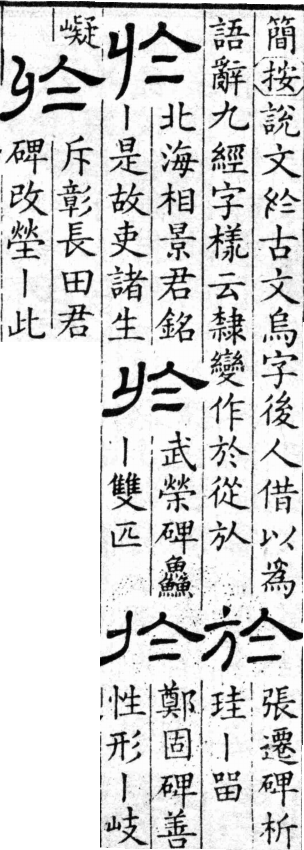 簡按說文於古文烏字後人借以為
語辭九經字樣云隸變作於從放
於
張遷碑析
珪丨畱
於
北海相景君銘
丨是故吏諸生
於
武榮碑鱻
丨雙匹
扵
鄭固碑善
性形丨岐
嶷
於
斥彰長田君
碑改塋丨此